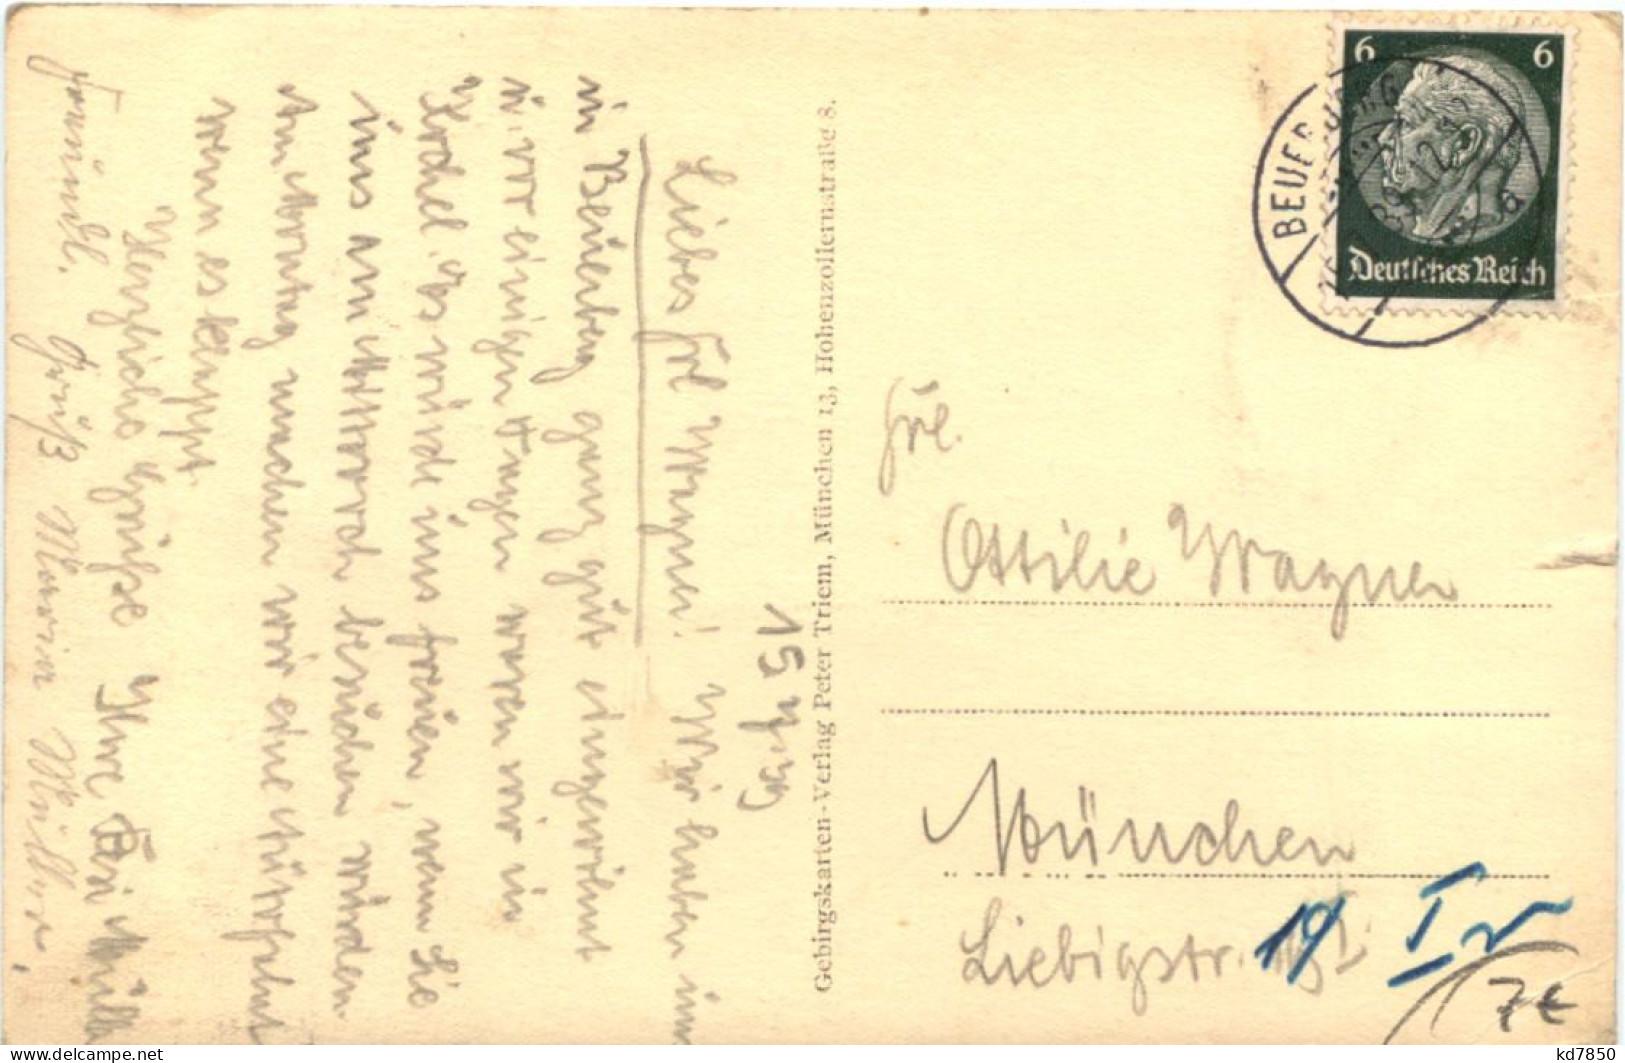 15. Aug.
Liebes Frl Wagner! Wir haben uns
in Beuerberg ganz gut eingewöhnt
u. vor einigen Tagen waren wir in
Kochel. Es würde uns freuen, wenn Sie
uns am Mittwoch besuchen würden.
Am Montag machen wir eine
wenn es klappt.
Herzliche Grüße Ihre
freundl. Grüße Maria Müller.
Gebirgskarten-Verlag Peter Triem, München 13, Hohenzollernstraße 8.
6 6
Deutsches Reich
BEUERBERG
Frl.
Ottilie Wagner
München
Liebigstr. 19 I